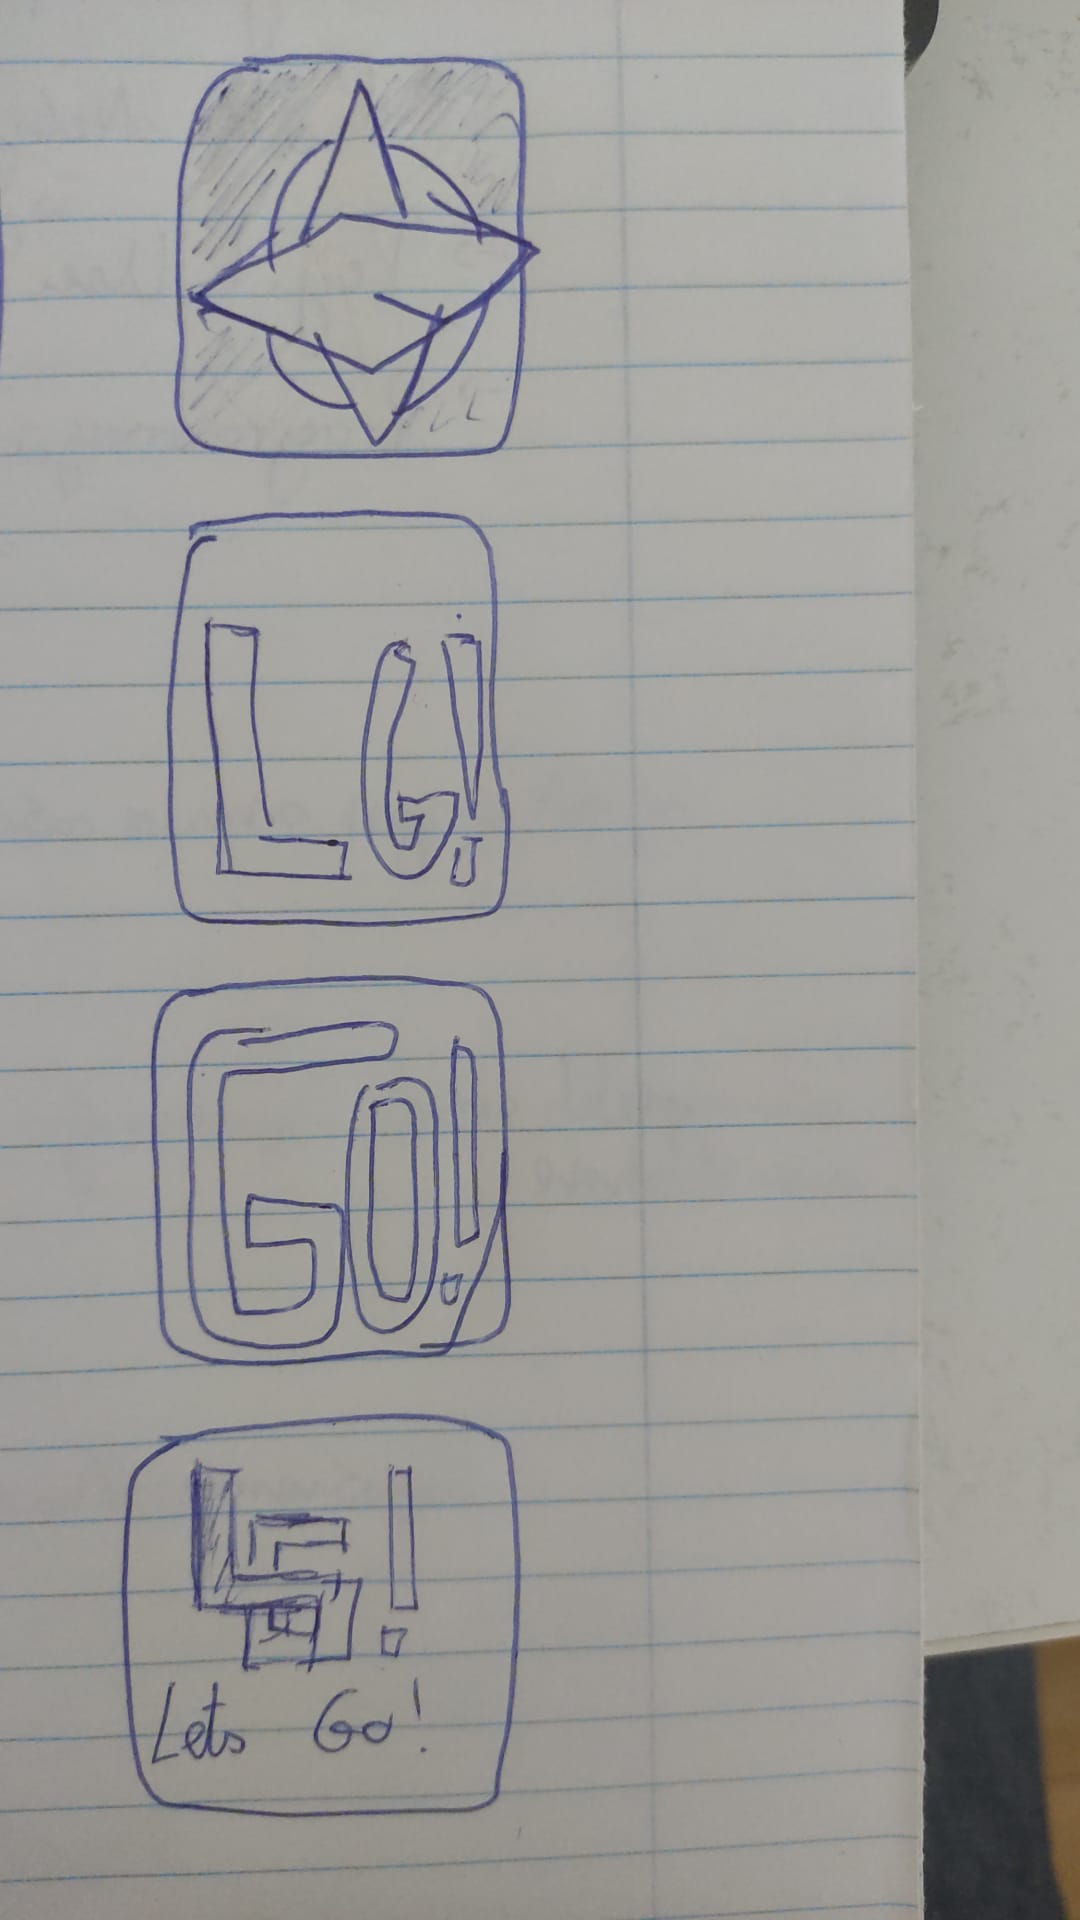 LG!
GO!
LG!
Lets Go!